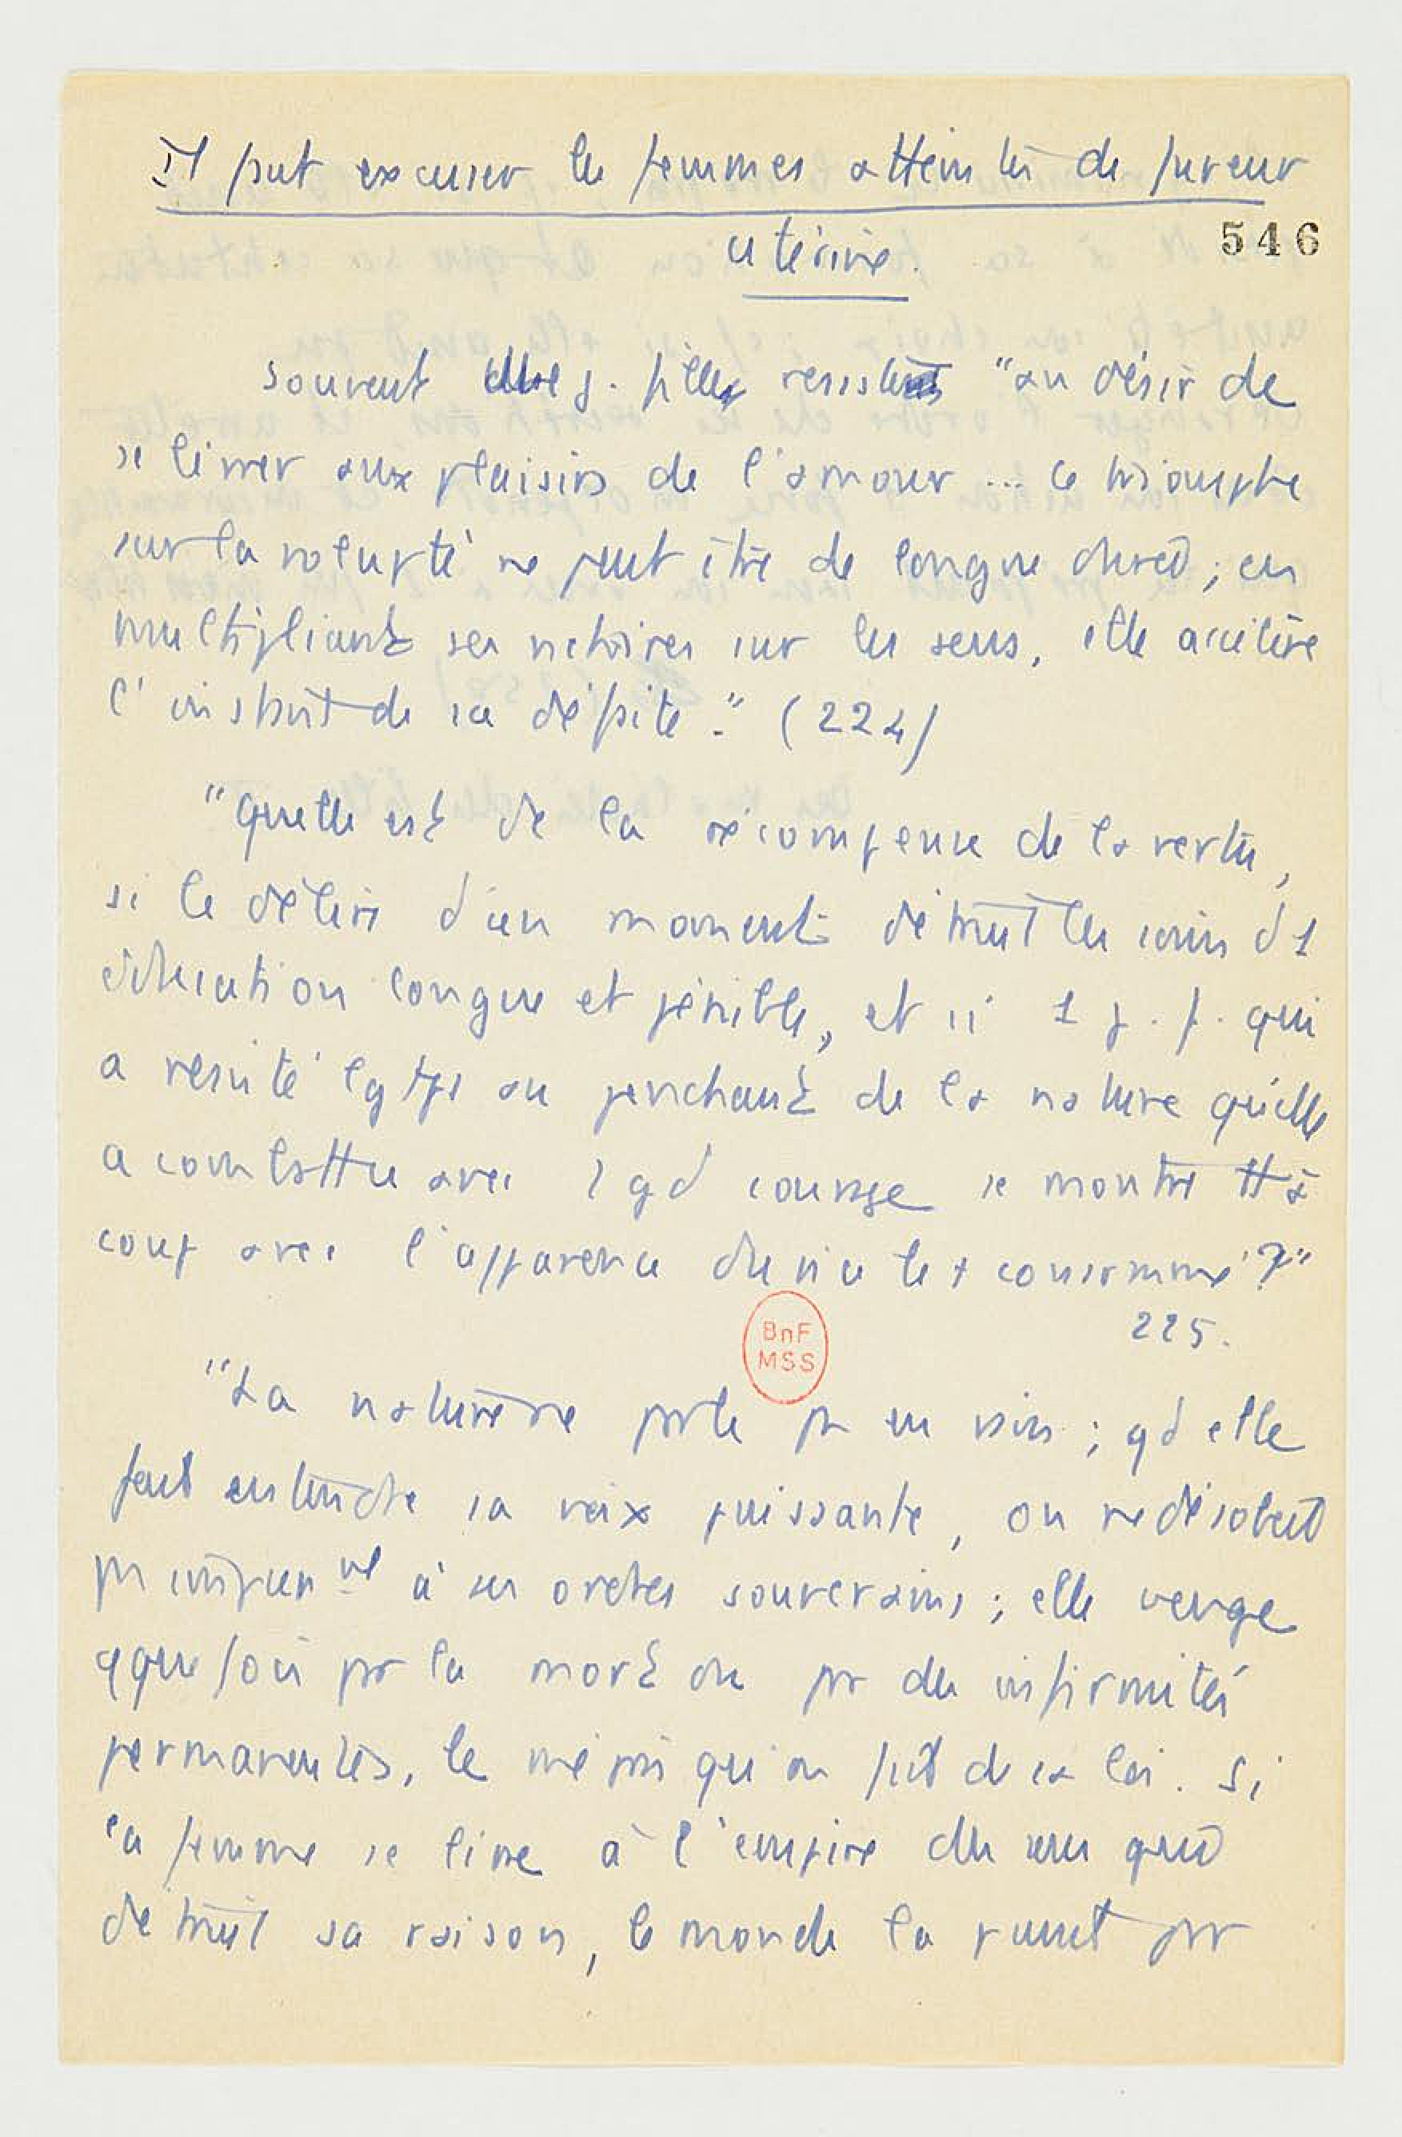 Il faut excuser les femmes atteintes de fureur
utérine.
546
souvent j. filles resistent "au désir de
se livrer aux plaisirs de l'amour ... ce triomphe
sur la volupté ne peut être de longue durée ; en
multipliant ses victoires sur les sens, elle accélère
l'instant de sa défaite." (224)
"Quelle est de la récompense de la vertu,
si le délire d'un moment détruit les soins d'1
éducation longue et pénible, et si 1 j. f. qui
a resisté lgtps au penchant de la nature qu'elle
a combattu avec 1 gd courage se montre tt à
coup avec l'apparence du vice le + consommé ?"
225.
BnF
MSS
"La nature ne parle pas en vain ; qd elle
fait entendre sa voix puissante, on ne désobéit
pas impunmt à ses ordres souverains ; elle venge
qque fois par la mort ou par des infirmités
permanentes, le mépris qu'on fait de sa loi. Si
la femme se livre à l'empire du sens qui
détruit sa raison, le monde la punit par